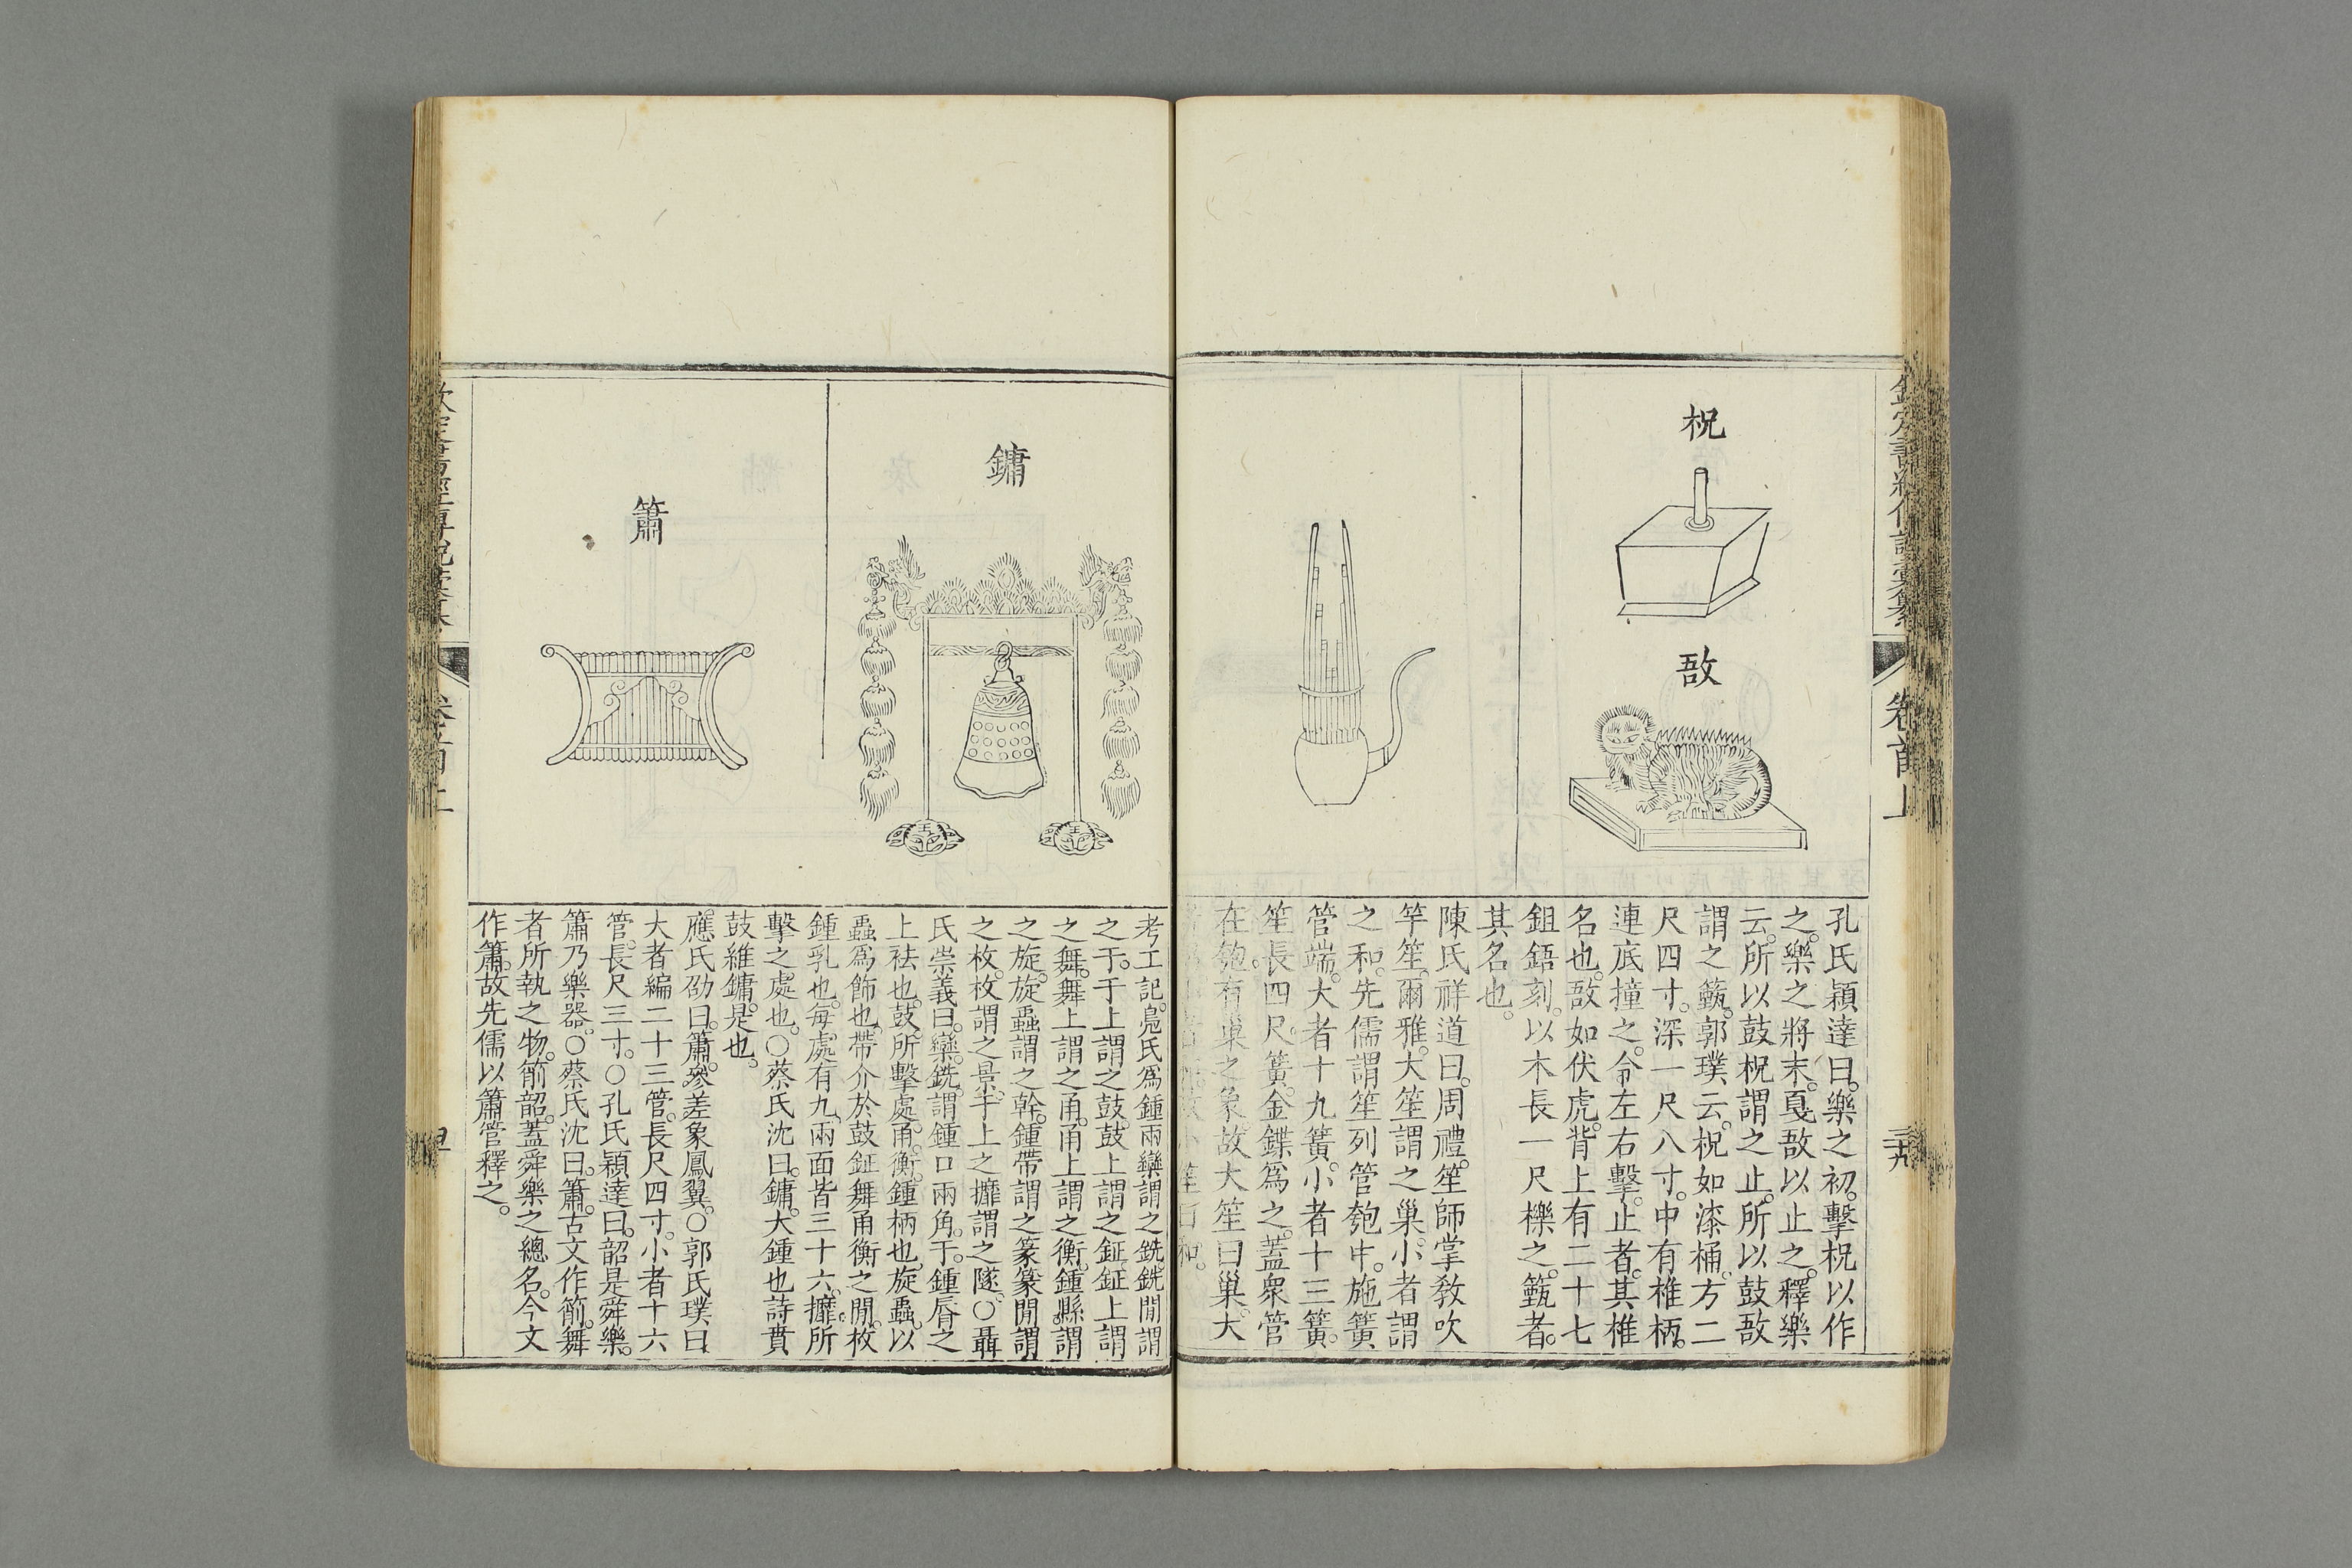 柷
敔
孔氏穎達曰樂之初擊柷以作
之樂之將末戛敔以止之釋樂
云所以鼓柷謂之止所以鼓敔
謂之籈郭璞云柷如漆桶方二
尺四寸深一尺八寸中有椎柄
連底撞之令左右擊止者其椎
名也敔如伏虎背上有二十七
鉏鋙刻以木長一尺櫟之籈者
其名也
陳氏祥道曰周禮笙師掌敎吹
竽笙爾雅大笙謂之巢小者謂
之和先儒謂笙列管匏中施簧
管端大者十九簧小者十三簧
笙長四尺簧金鍱爲之蓋眾管
在匏有巢之象故大笙曰巢大
笙曰和
鏞
簫
考工記鳧氏爲鍾兩欒謂之銑銑閒謂
之于于上謂之鼓鼓上謂之鉦鉦上謂
之舞舞上謂之甬甬上謂之衡鍾縣謂
之旋旋蟲謂之幹鍾帶謂之篆篆閒謂
之枚枚謂之景于上之攠謂之隧○聶
氏崇義曰欒銑謂鍾口兩角于鍾脣之
上袪也鼓所擊處甬衡鍾柄也旋蟲以
蟲爲飾也帶介於鼓鉦舞甬衡之閒枚
鍾乳也每處有九兩面皆三十六攠所
擊之處也○蔡氏沈曰鏞大鍾也詩賁
鼓維鏞是也
應氏劭曰簫參差象鳳翼○郭氏璞曰
大者編二十三管長尺四寸小者十六
管長尺三寸○孔氏穎達曰韶是舜樂
簫乃樂器○蔡氏沈曰簫古文作箾舞
者所執之物箾韶蓋舜樂之總名今文
作簫故先儒以簫管釋之
卷首上
三十九